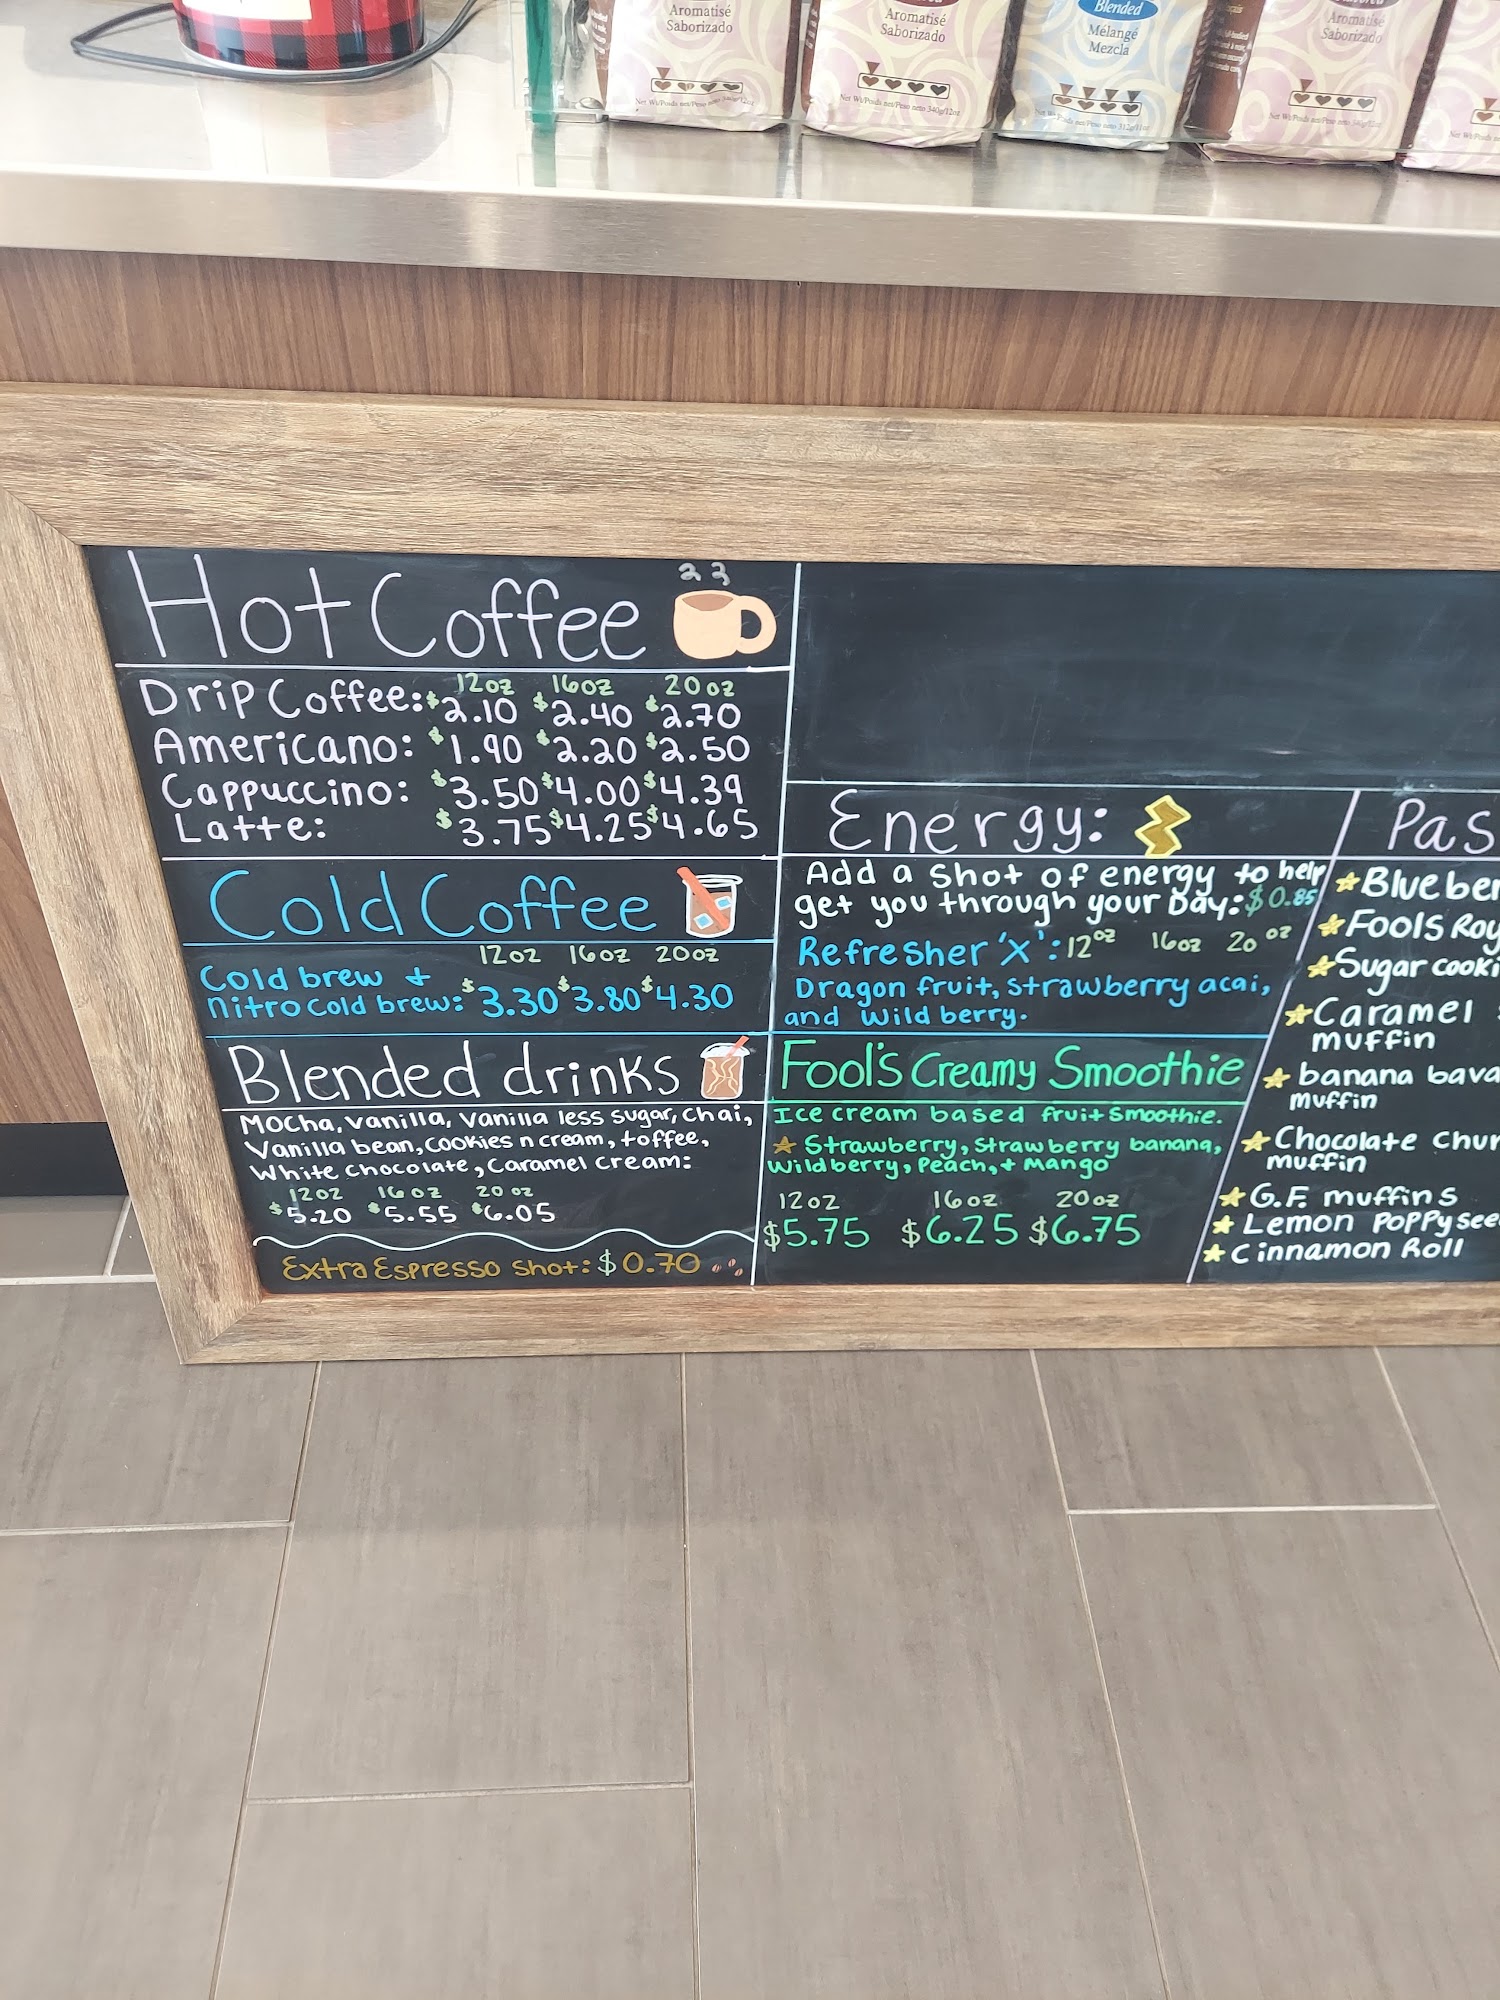 Aromatisé
Saborizado
Aromatisé
Saborizado
Net Wt/Poids net/Peso neto 340g/12oz
Blended
Mélangé
Mezcla
Net Wt/Poids net/Peso neto 312g/11oz
Aromatisé
Saborizado
Hot Coffee
12oz 16oz 20oz
Drip Coffee: $2.10 $2.40 $2.70
Americano: $1.90 $2.20 $2.50
Cappuccino: $3.50 $4.00 $4.39
Latte: $3.75 $4.25 $4.65
Cold Coffee
12oz 16oz 20oz
Cold brew +
nitro cold brew: $3.30 $3.80 $4.30
Blended drinks
Mocha, vanilla, vanilla less sugar, chai,
Vanilla bean, cookies n cream, toffee,
White chocolate, caramel cream:
12oz 16oz 20oz
$5.20 $5.55 $6.05
Extra Espresso shot: $0.70
Energy:
Add a shot of energy to help
get you through your Day: $0.85
Refresher 'X': 12oz 16oz 20oz
Dragon fruit, strawberry acai,
and wild berry.
Fool's Creamy Smoothie
Ice cream based fruit smoothie.
Strawberry, strawberry banana,
Wildberry, Peach, + Mango
12oz 16oz 20oz
$5.75 $6.25 $6.75
Pas
Blueber
Fools Roy
Sugar cooki
Caramel
muffin
banana bava
muffin
Chocolate chun
muffin
G.F. muffins
Lemon Poppysee
Cinnamon Roll